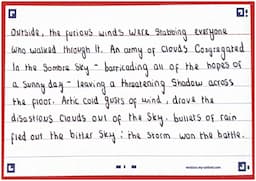 Outside, the furious winds were stabbing everyone
who walked through it. An army of clouds congregated
in the sombre sky - barricading all of the hopes of
a sunny day - leaving a threatening shadow across
the floor. Artic cold gusts of wind, drove the
disastrous clouds out of the sky. bullets of rain
fled out the bitter sky: the storm won the battle.